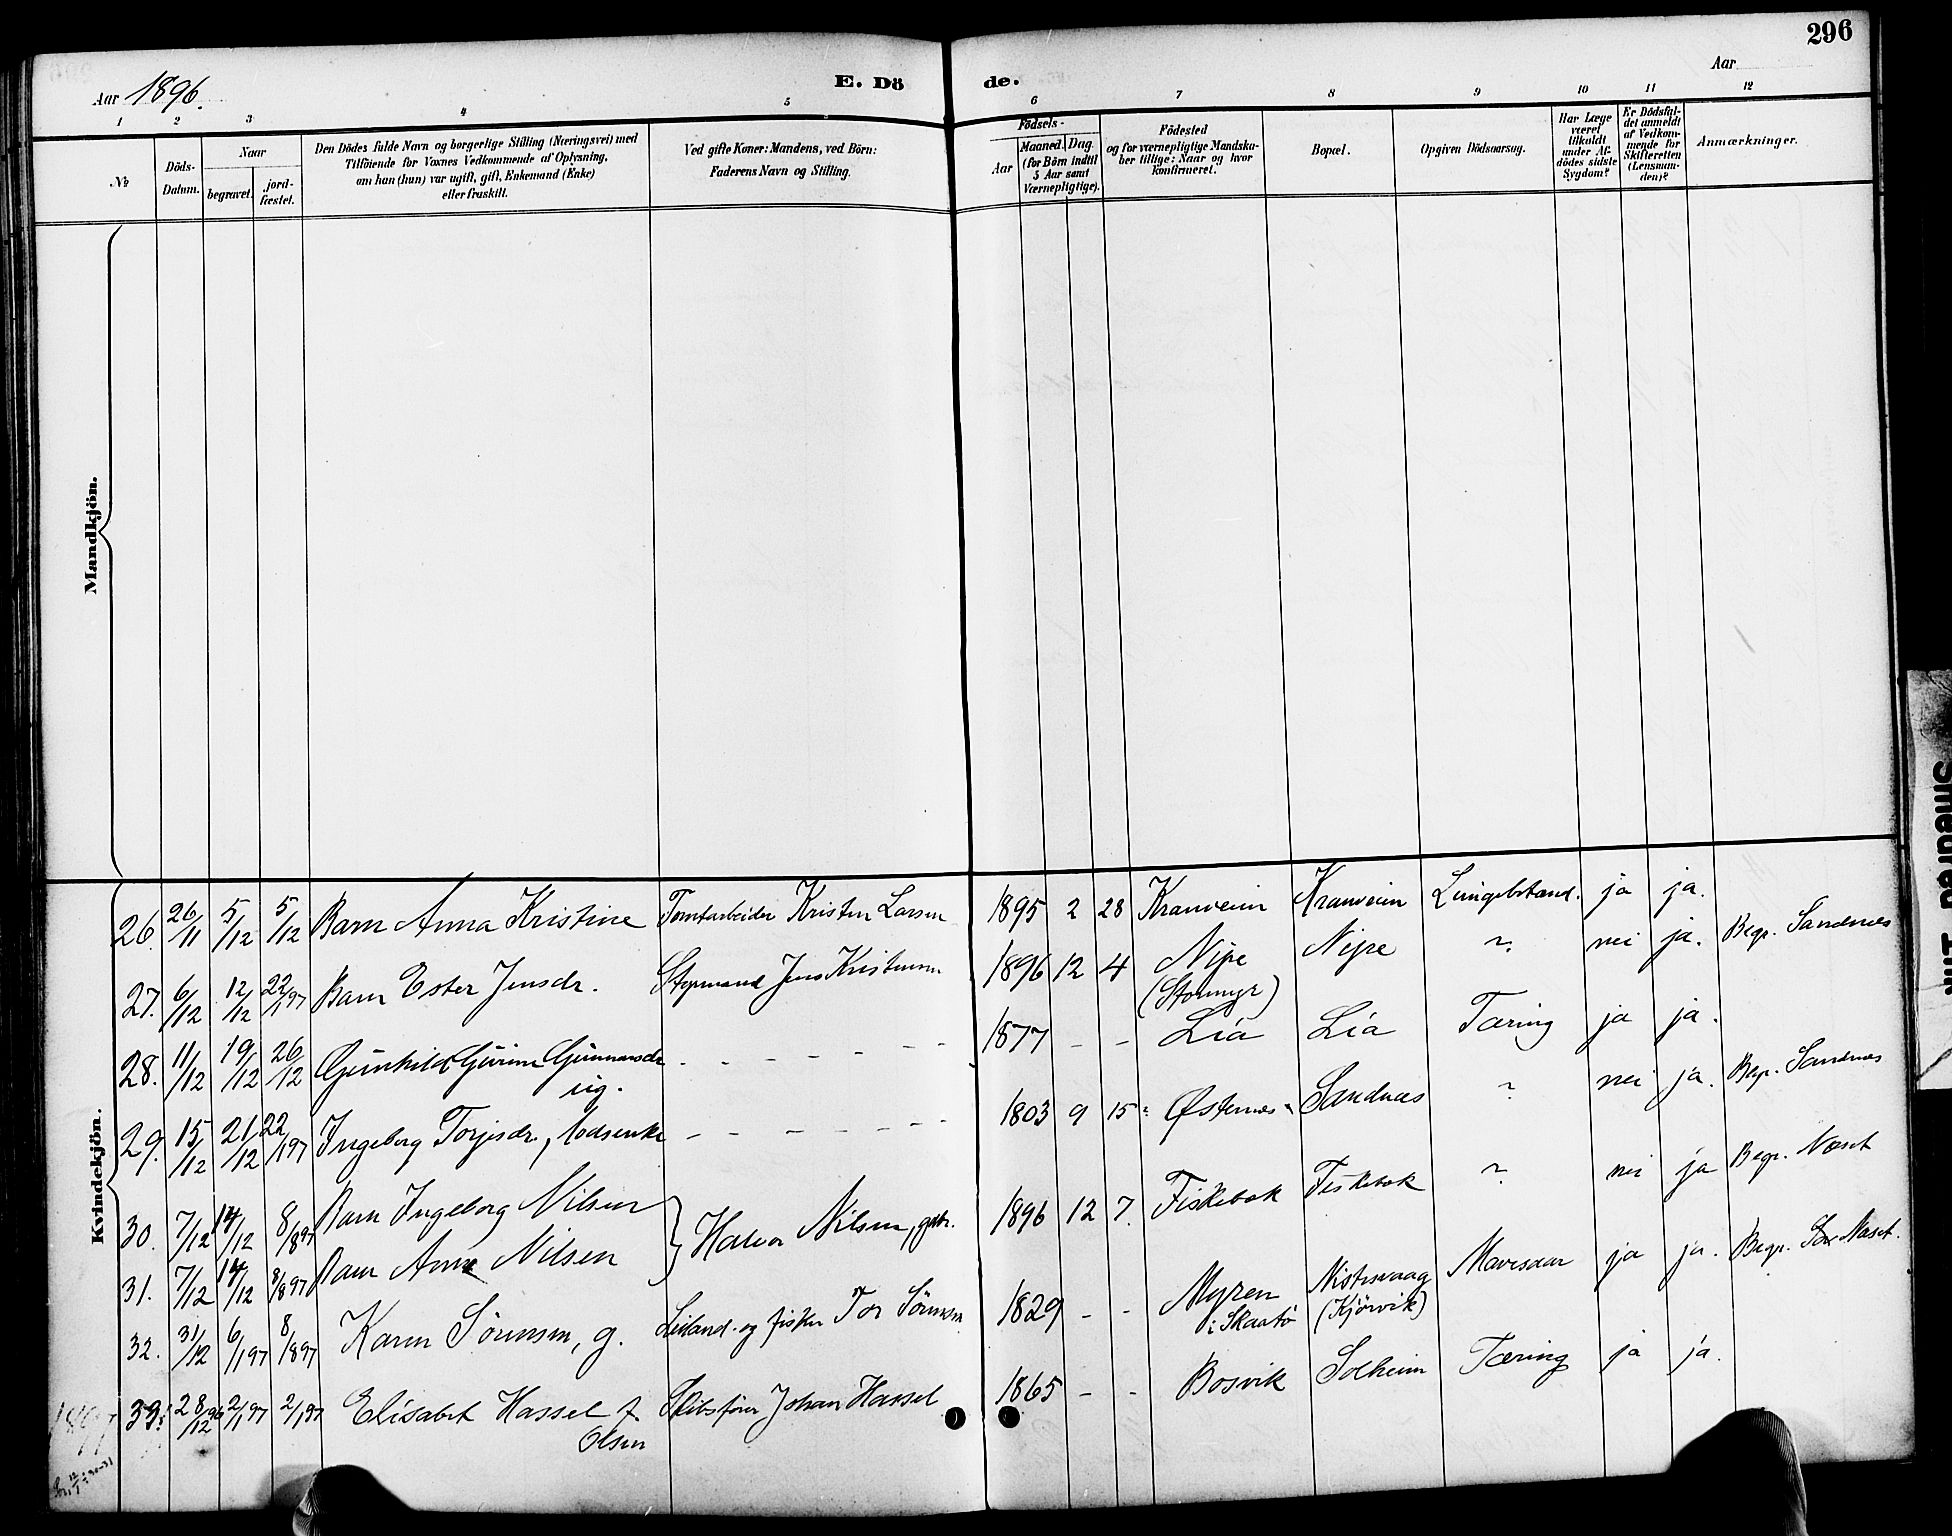 296
Aar 1896.
E. Dö
de.
Aar
1 2 3 4 5 6 7 8 9 10 11 12
№
Döds-Datum.
Naar
begravet.
jord-fæstet.
Den Dödes fulde Navn og borgerlige Stilling (Næringsvei) med
Tilföiende for Voxnes Vedkommende af Oplysning,
om han (hun) var ugift, gift, Enkemand (Enke)
eller fraskilt.
Ved gifte Koner: Mandens, ved Börn:
Faderens Navn og Stilling.
Födsels-
Aar
Maaned. Dag.
(for Börn indtil
5 Aar samt
Værnepligtige).
Födested
og for værnepligtige Mandska-
ber tillige: Naar og hvor
konfirmeret.
Bopæl.
Opgiven Dödsaarsag.
Har Læge
været
tilkaldt
under Af-
dödes sidste
Sygdom?
Er Dödsfal-
det anmeldt
af Vedkom-
mende for
Skifteretten
(Lensman-
den)?
Anmærkninger.
Mandkjön.
Kvindekjön.
26. 26/11 5/12 5/12 Barn Anna Kristine Tomtarbeider Kristen Larsen 1895 2 28 Kranveien Kranveien Lungebetænd. ja ja.
27. 6/12 12/12 22/1 97 Barn Ester Jensdr. Styrmand Jens Kristensen 1896 12 4 Nipe (Stormyr) Nipe ? nei ja. Begr. Sandnes
28. 11/12 19/12 26/12 Gunhild Gurine Gunnarsdr ug. - - - - - 1877 - - Lia Lia Tæring ja ja.
29. 15/12 21/12 22/1 97 Ingeborg Torjesdr., - - - - - 1803 9 15 Østernes Sandnæs ? nei ja. Begr. Sandnes
30. 7/12 14/12 8/8 97 Barn Ingeborg Nilsen } Halvor Nilsen, 1896 12 7. Fiskebæk Fiskebæk ? nei ja Begr. Næset
31. 7/12 14/12 8/8 97 Barn Anne Nilsen
32. 31/12 6/1 97 8/8 97 Karen Sörensen, g. Leiland. og fisker Tor Sörensen 1829 - - Myren i Skaatö (Kjörvik) Mavesaar ja ja. Begr. Næset.
33. 28/12 96 2/1 97 2/1 97 Elisabet Hassel f. Olsen Skibsfører Johan Hassel 1865 - - Bosvik Solheim Tæring ja ja.
1897